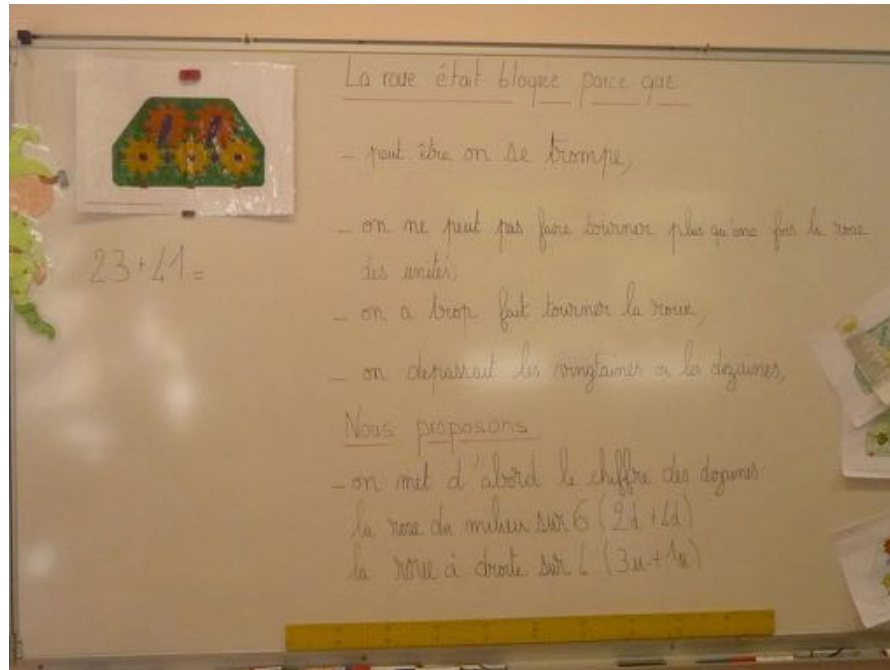 La roue était bloquée parce que
- peut être on se trompe,
- on ne peut pas faire tourner plus qu'une fois la roue
des unités,
23+41=
- on a trop fait tourner la roue,
- on dépassait les vingtaines ou les dizaines,
Nous proposons
- on met d'abord le chiffre des dizaines
la roue du milieu sur 6 (2d+4d)
la roue à droite sur 4 (3u+1u)